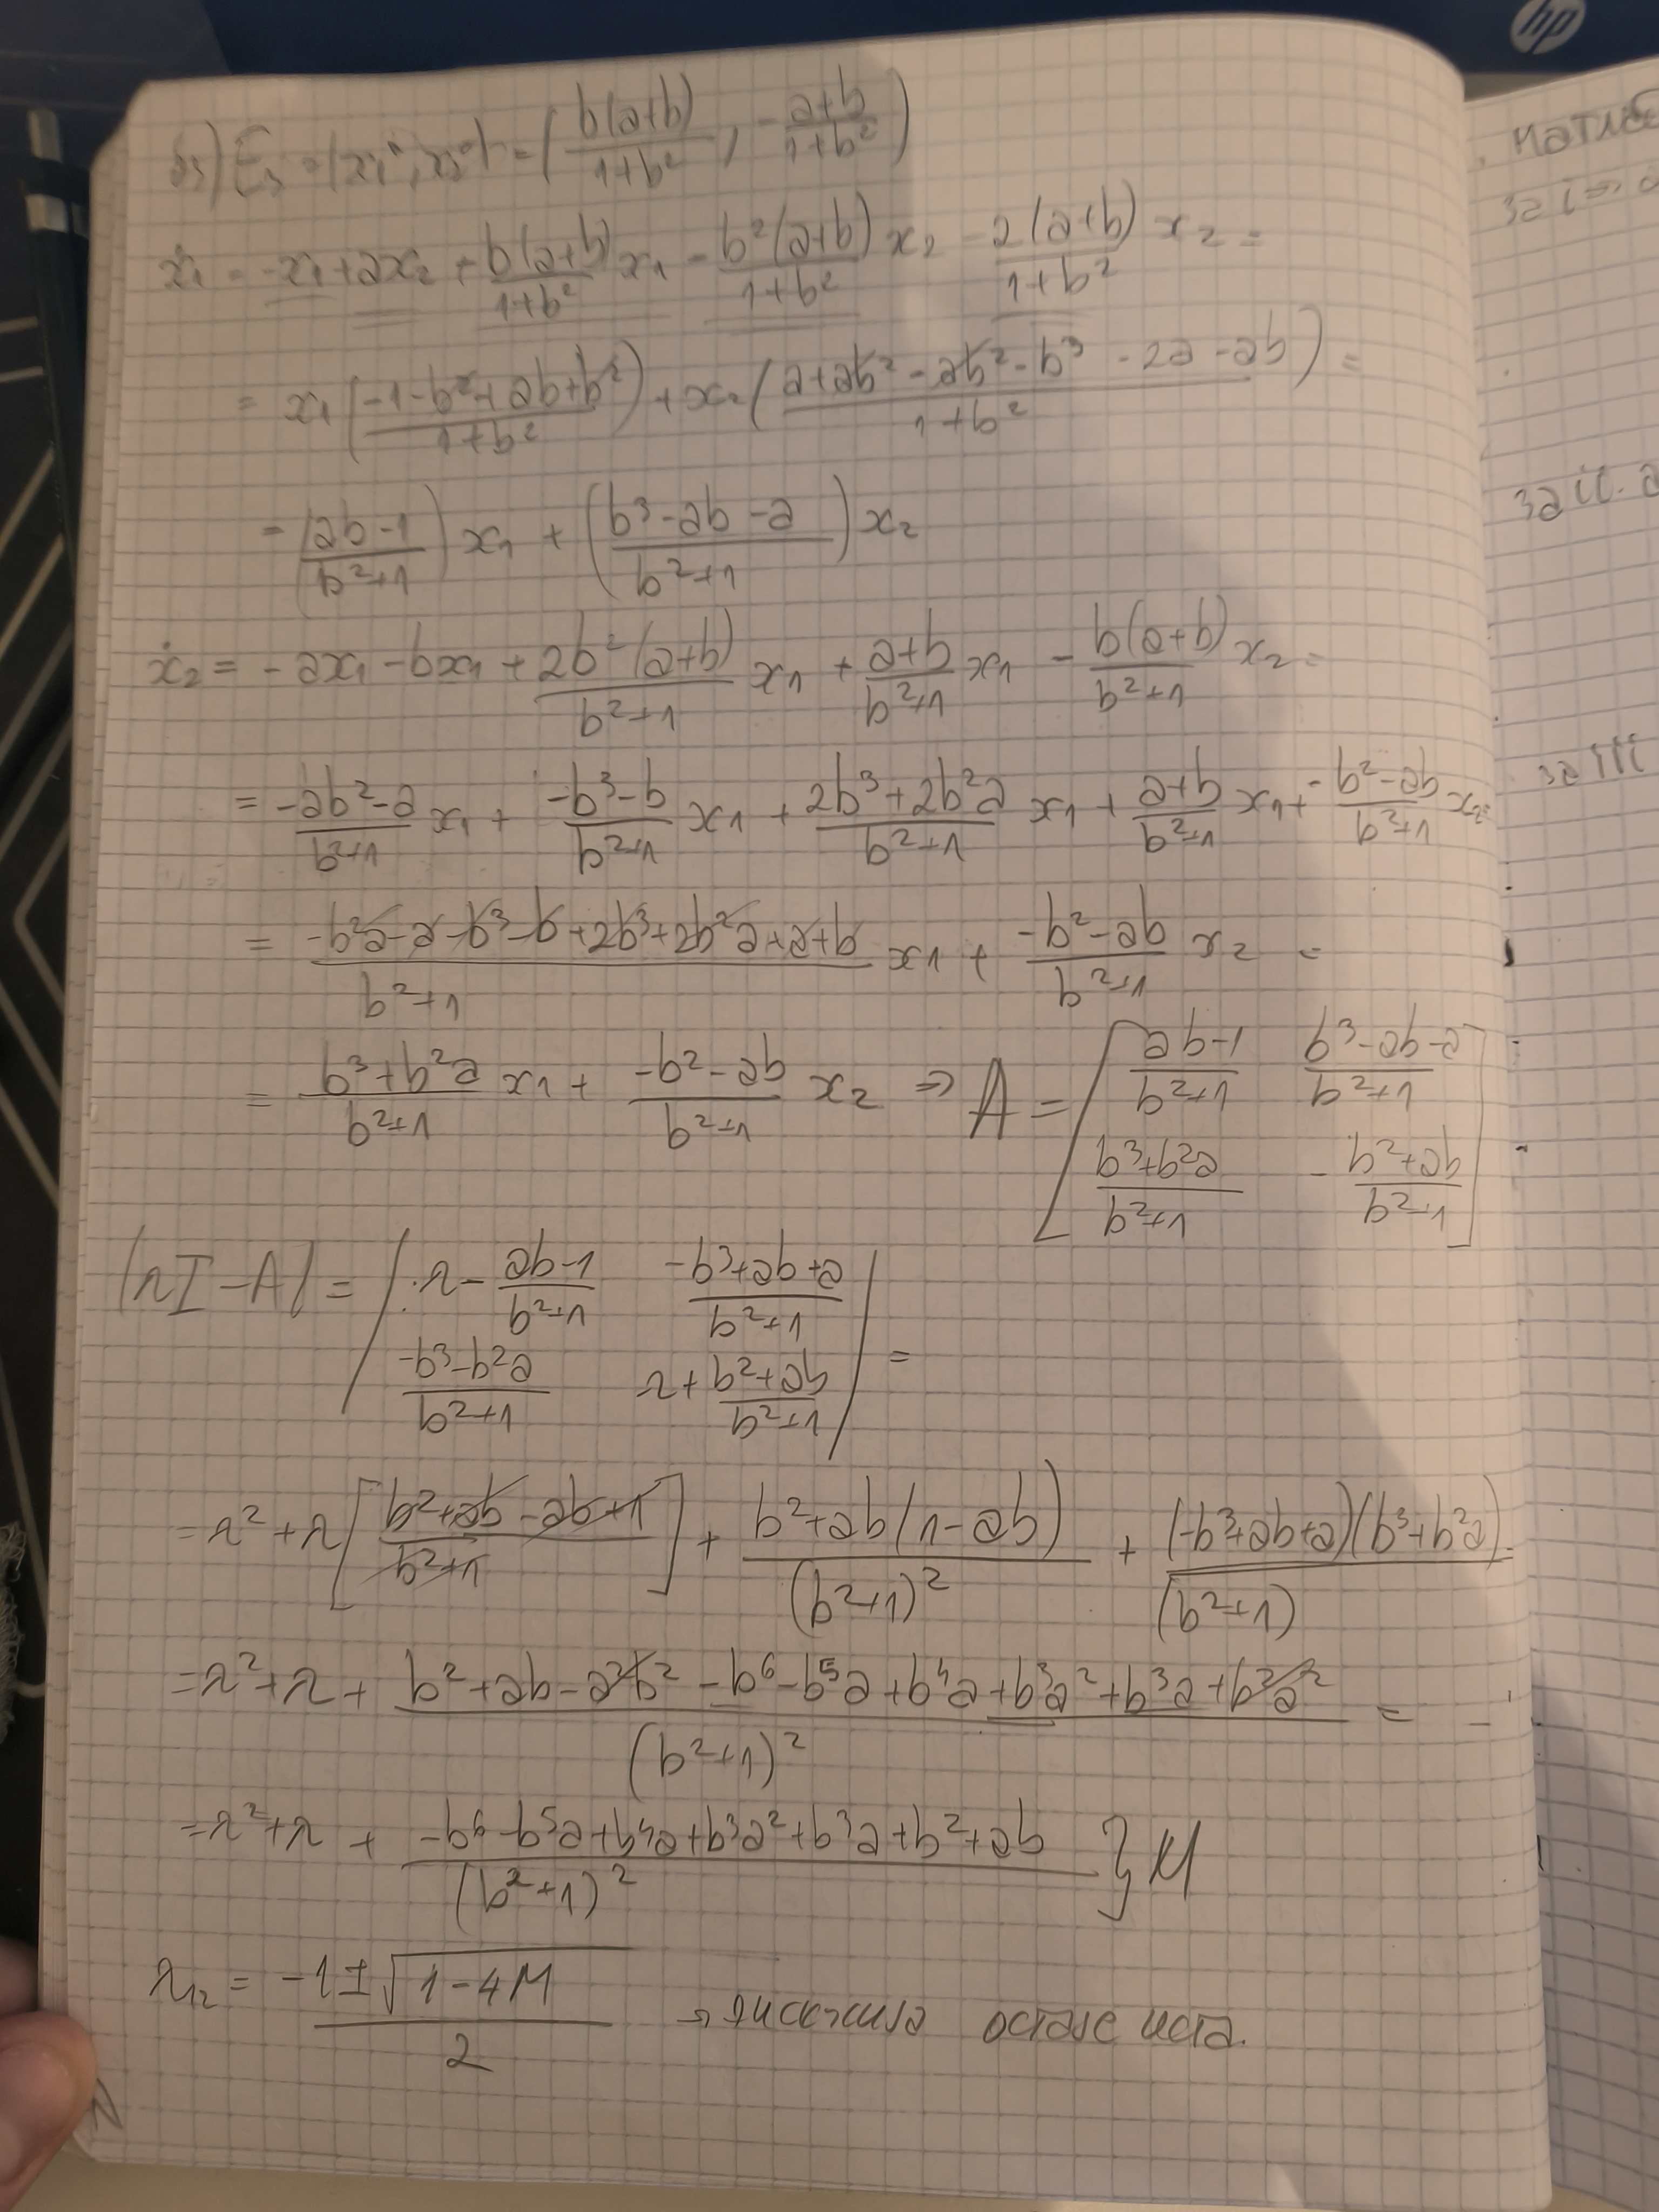 hp
b3) E₃ = (x₁ⁿ, x₂ⁿ) = ( b(a+b)/(1+b²) , - (a+b)/(1+b²) )
ẋ₁ = -x₁ + ax₂ + b(a+b)/(1+b²) x₁ - b²(a+b)/(1+b²) x₂ - 2(a+b)/(1+b²) x₂ =
= x₁ ( (-1-b²+ab+b²)/(1+b²) ) + x₂ ( (a+ab²-ab²-b³-2a-ab)/(1+b²) ) =
= ( (ab-1)/(b²+1) ) x₁ + ( (b³-ab-a)/(b²+1) ) x₂
ẋ₂ = -ax₁ - bx₁ + 2b²(a+b)/(b²+1) x₁ + (a+b)/(b²+1) x₁ - b(a+b)/(b²+1) x₂ =
= (-ab²-a)/(b²+1) x₁ + (-b³-b)/(b²+1) x₁ + (2b³+2b²a)/(b²+1) x₁ + (a+b)/(b²+1) x₁ + (-b²-ab)/(b²+1) x₂ =
= (-b²a-a-b³-b+2b³+2b²a+a+b)/(b²+1) x₁ + (-b²-ab)/(b²+1) x₂ =
= (b³+b²a)/(b²+1) x₁ + (-b²-ab)/(b²+1) x₂ => A = [ (ab-1)/(b²+1) (b³-ab-a)/(b²+1)
(b³+b²a)/(b²+1) - (b²+ab)/(b²+1) ]
|λI-A| = | λ - (ab-1)/(b²+1) (-b³+ab+a)/(b²+1)
(-b³-b²a)/(b²+1) λ + (b²+ab)/(b²+1) | =
= λ² + λ [ (b²+ab-ab+1)/(b²+1) ] + (b²+ab(1-ab))/(b²+1)² + (-b³+ab+a)(b³+b²a)/(b²+1)
= λ² + λ + (b²+ab-a²b²-b⁶-b⁵a+b⁴a+b³a²+b³a+b²a²)/(b²+1)² =
= λ² + λ + (-b⁶-b⁵a+b⁴a+b³a²+b³a+b²+ab)/(b²+1)² } M
λ₁₂ = (-1±√(1-4M))/2 → дискусија остаје иста.
за III